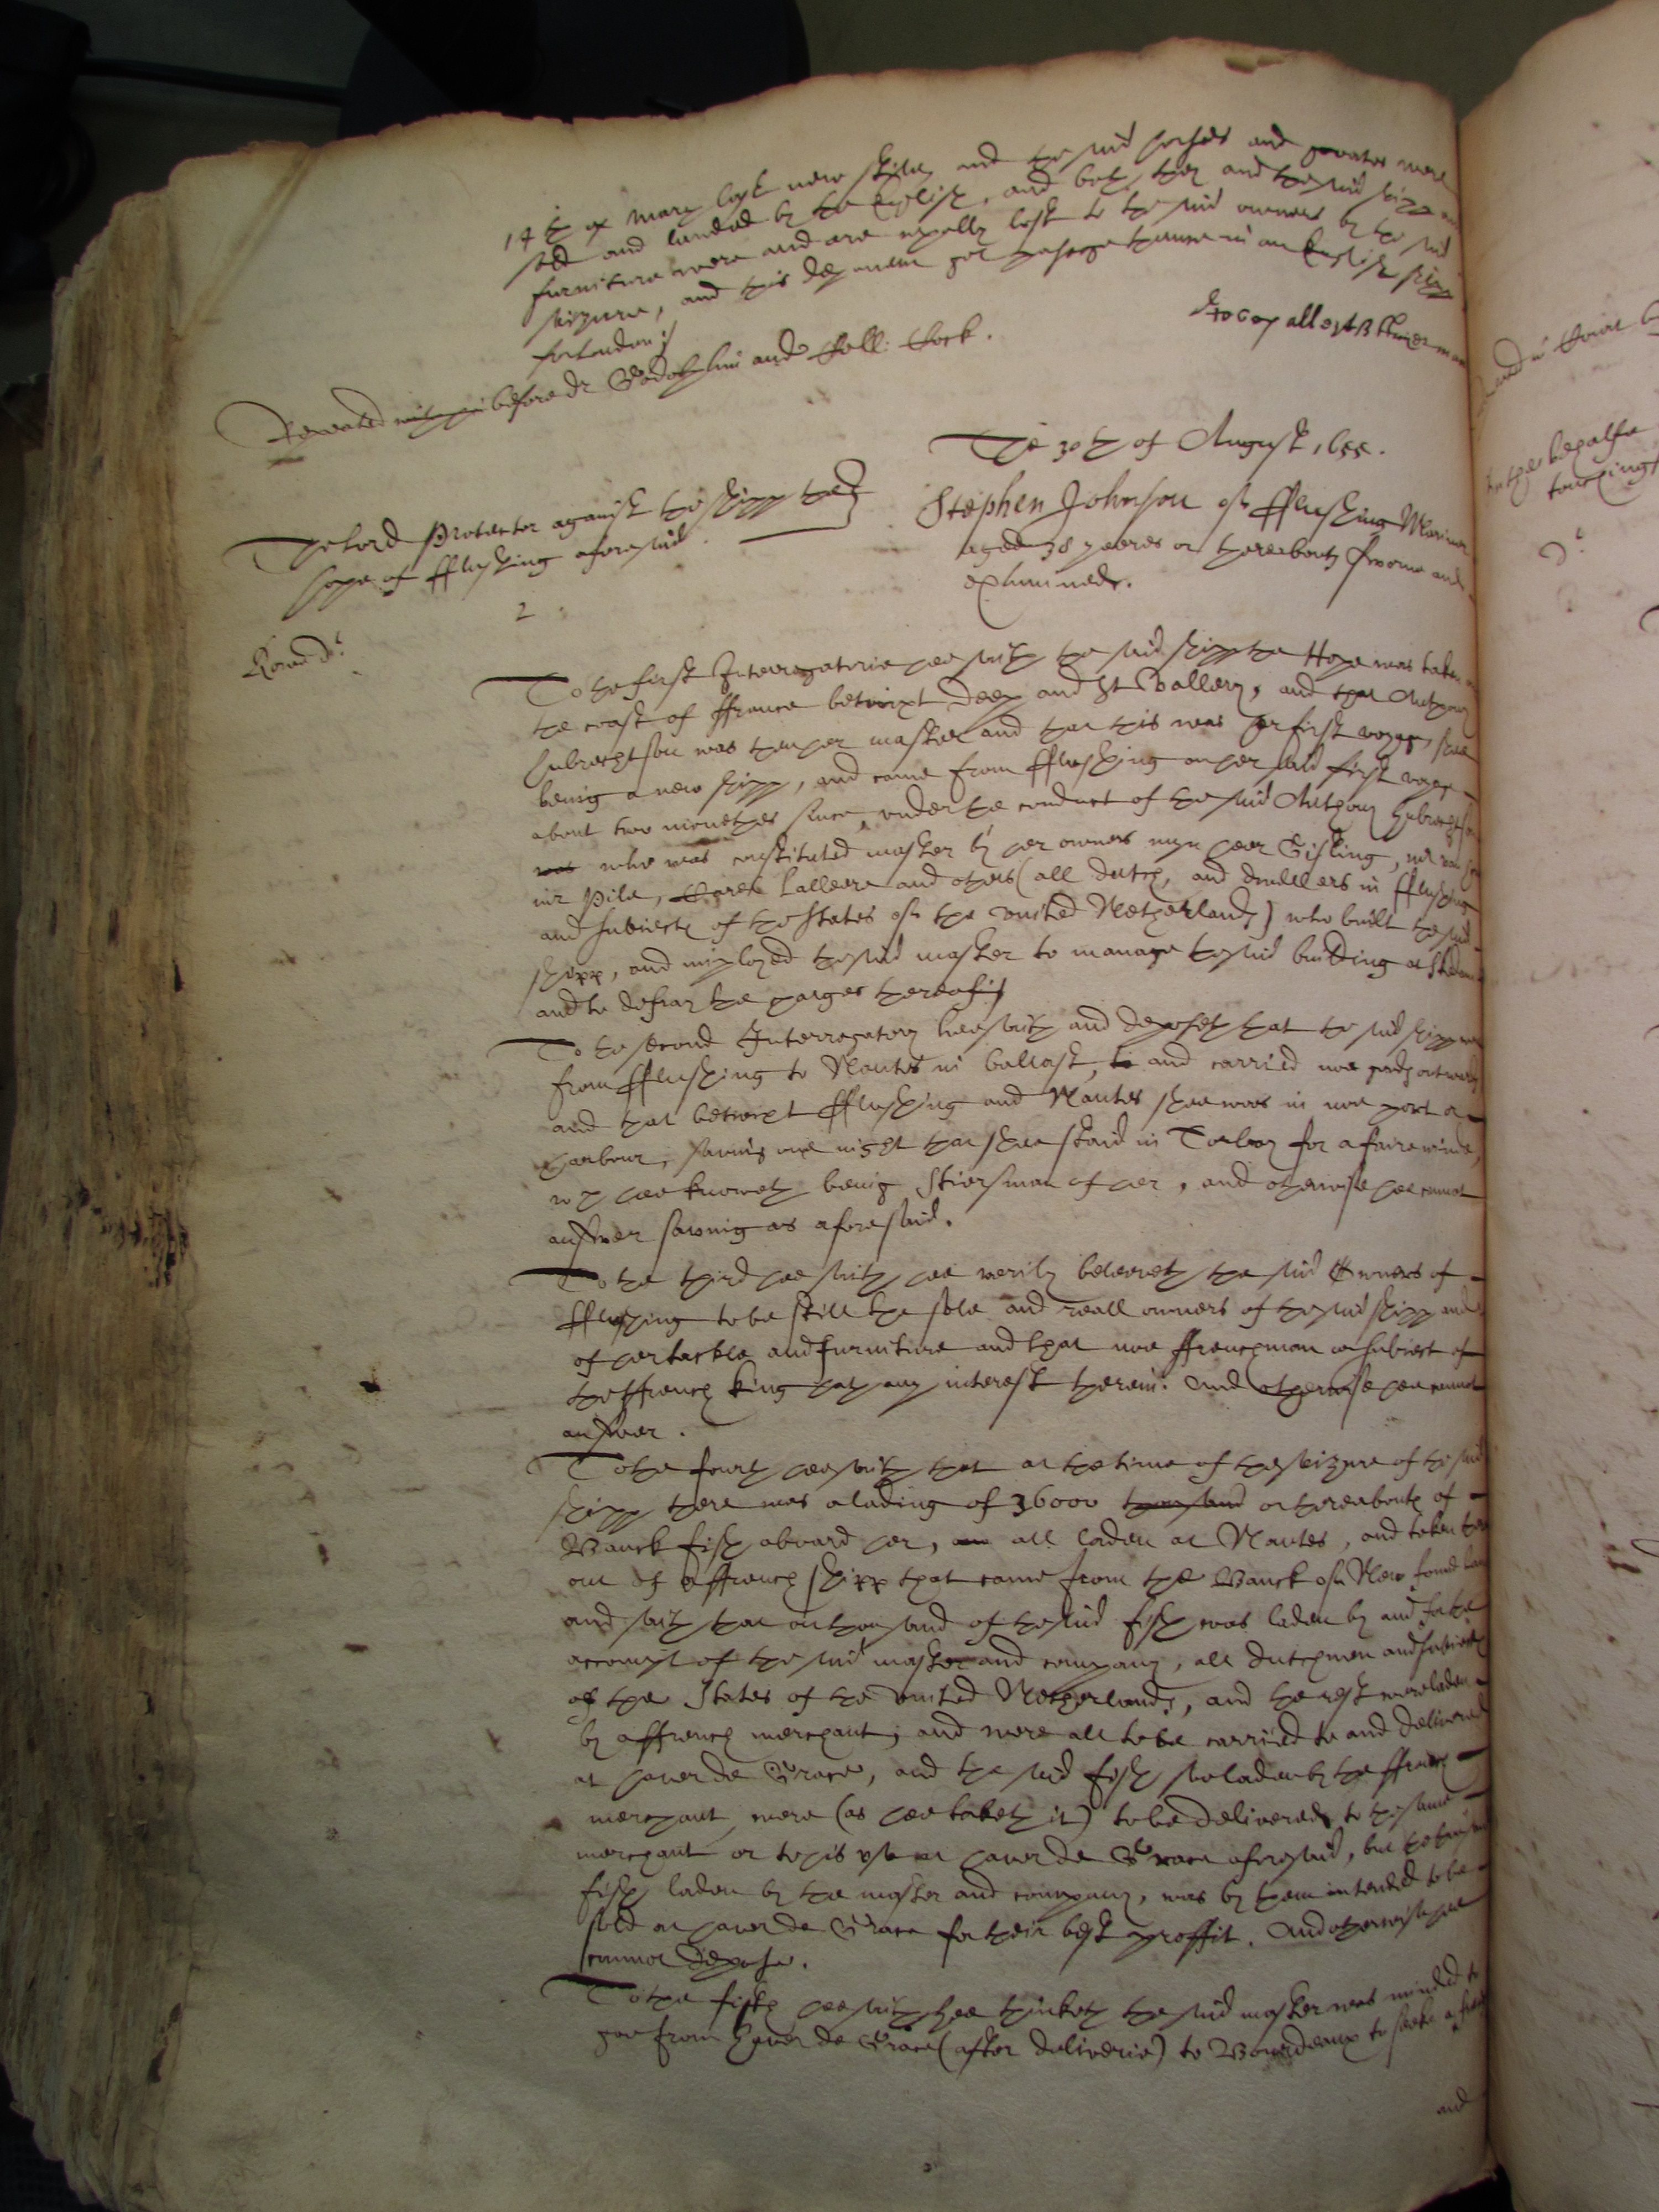 14th of March last new stile, and the said horses and goates were
sold and landed by the English, and both they and the said shipp and
furniture were and are wholly lost to the said owners by the said
seizure, and this deponent got passage thence in an English shipp
for London./
Repeated before dr Godolphin and Coll: Cock.
The 30th of August 1655.
The Lord Protector against the shipp the
hope of fflushing aforesaid.
Stephen Johnson of fflushing Mariner
aged 38 yeeres or thereabouts sworne and
examined.
2
Rowe dt.
To the first Interrogatorie hee saith the said shipp the Hope was taken on
the coast of ffrance betwixt Deep and St Vallery, and that Anthony
Hubrechtson was then her master and that this was her first voyage, shee
being a new shipp, and came from fflushing on her said first voyage
about two monethes since, under the conduct of the said Anthony Hubrechtson
was who was constituted master by her owners myn heer Gisling,
mr Pile, Carel Lalleere and others (all dutch, and dwellers in fflushing
and subiects of the States of the United Netherlands) who built the said
shipp, and imployed the said master to manage the said building
and to defray the charges thereof./
To the second Interrogatory hee saith and deposeth that the said shipp
from fflushing to Nantes in ballast, to and carried noe goods outwards
and that betwixt fflushing and Nantes shee was in noe port or
harbour, saving one night that shee staid in Torbay for a faire winde,
wch hee knoweth being Stiersman of her, and otherwise hee cannot
answer saving as aforesaid.
To the third hee saith hee verily beleeveth the said Owners of
fflushing to be still the sole and reall owners of the said shipp and
of her tackle and furniture and that noe ffrenchman or subiect of
the ffrench king hath any interest therein. And otherwise hee cannot
answer.
To the fourth hee saith that at the time of the seizure of the said
shipp there was a lading of 36000 thousand or thereabouts of
Banck fish aboard her, all laden at Nantes, and taken
out of a ffrench shipp that came from the Banck of New found land
and saith that one thousand of the said fish was laden by and for the
accompt of the said master and company, all dutchmen and subiects
of the States of the United Netherlands, and the rest were laden
by a ffrench merchant, and were all to be carried to and delivered
at haver de Grace, and the said fish soe laden by the ffrench
merchant, were (as hee taketh it) to be delivered to the same
merchant or to his use at haver de Grace aforesaid, but the
fish laden by the master and company, was by them intended to be
sold at haver de Grace for their best proffit. And otherwise hee
cannot depose.
To the fifth hee saith hee thinketh the said master was minded to
goe from haver de Grace (after deliverie) to Bourdeaux to seeke a
and